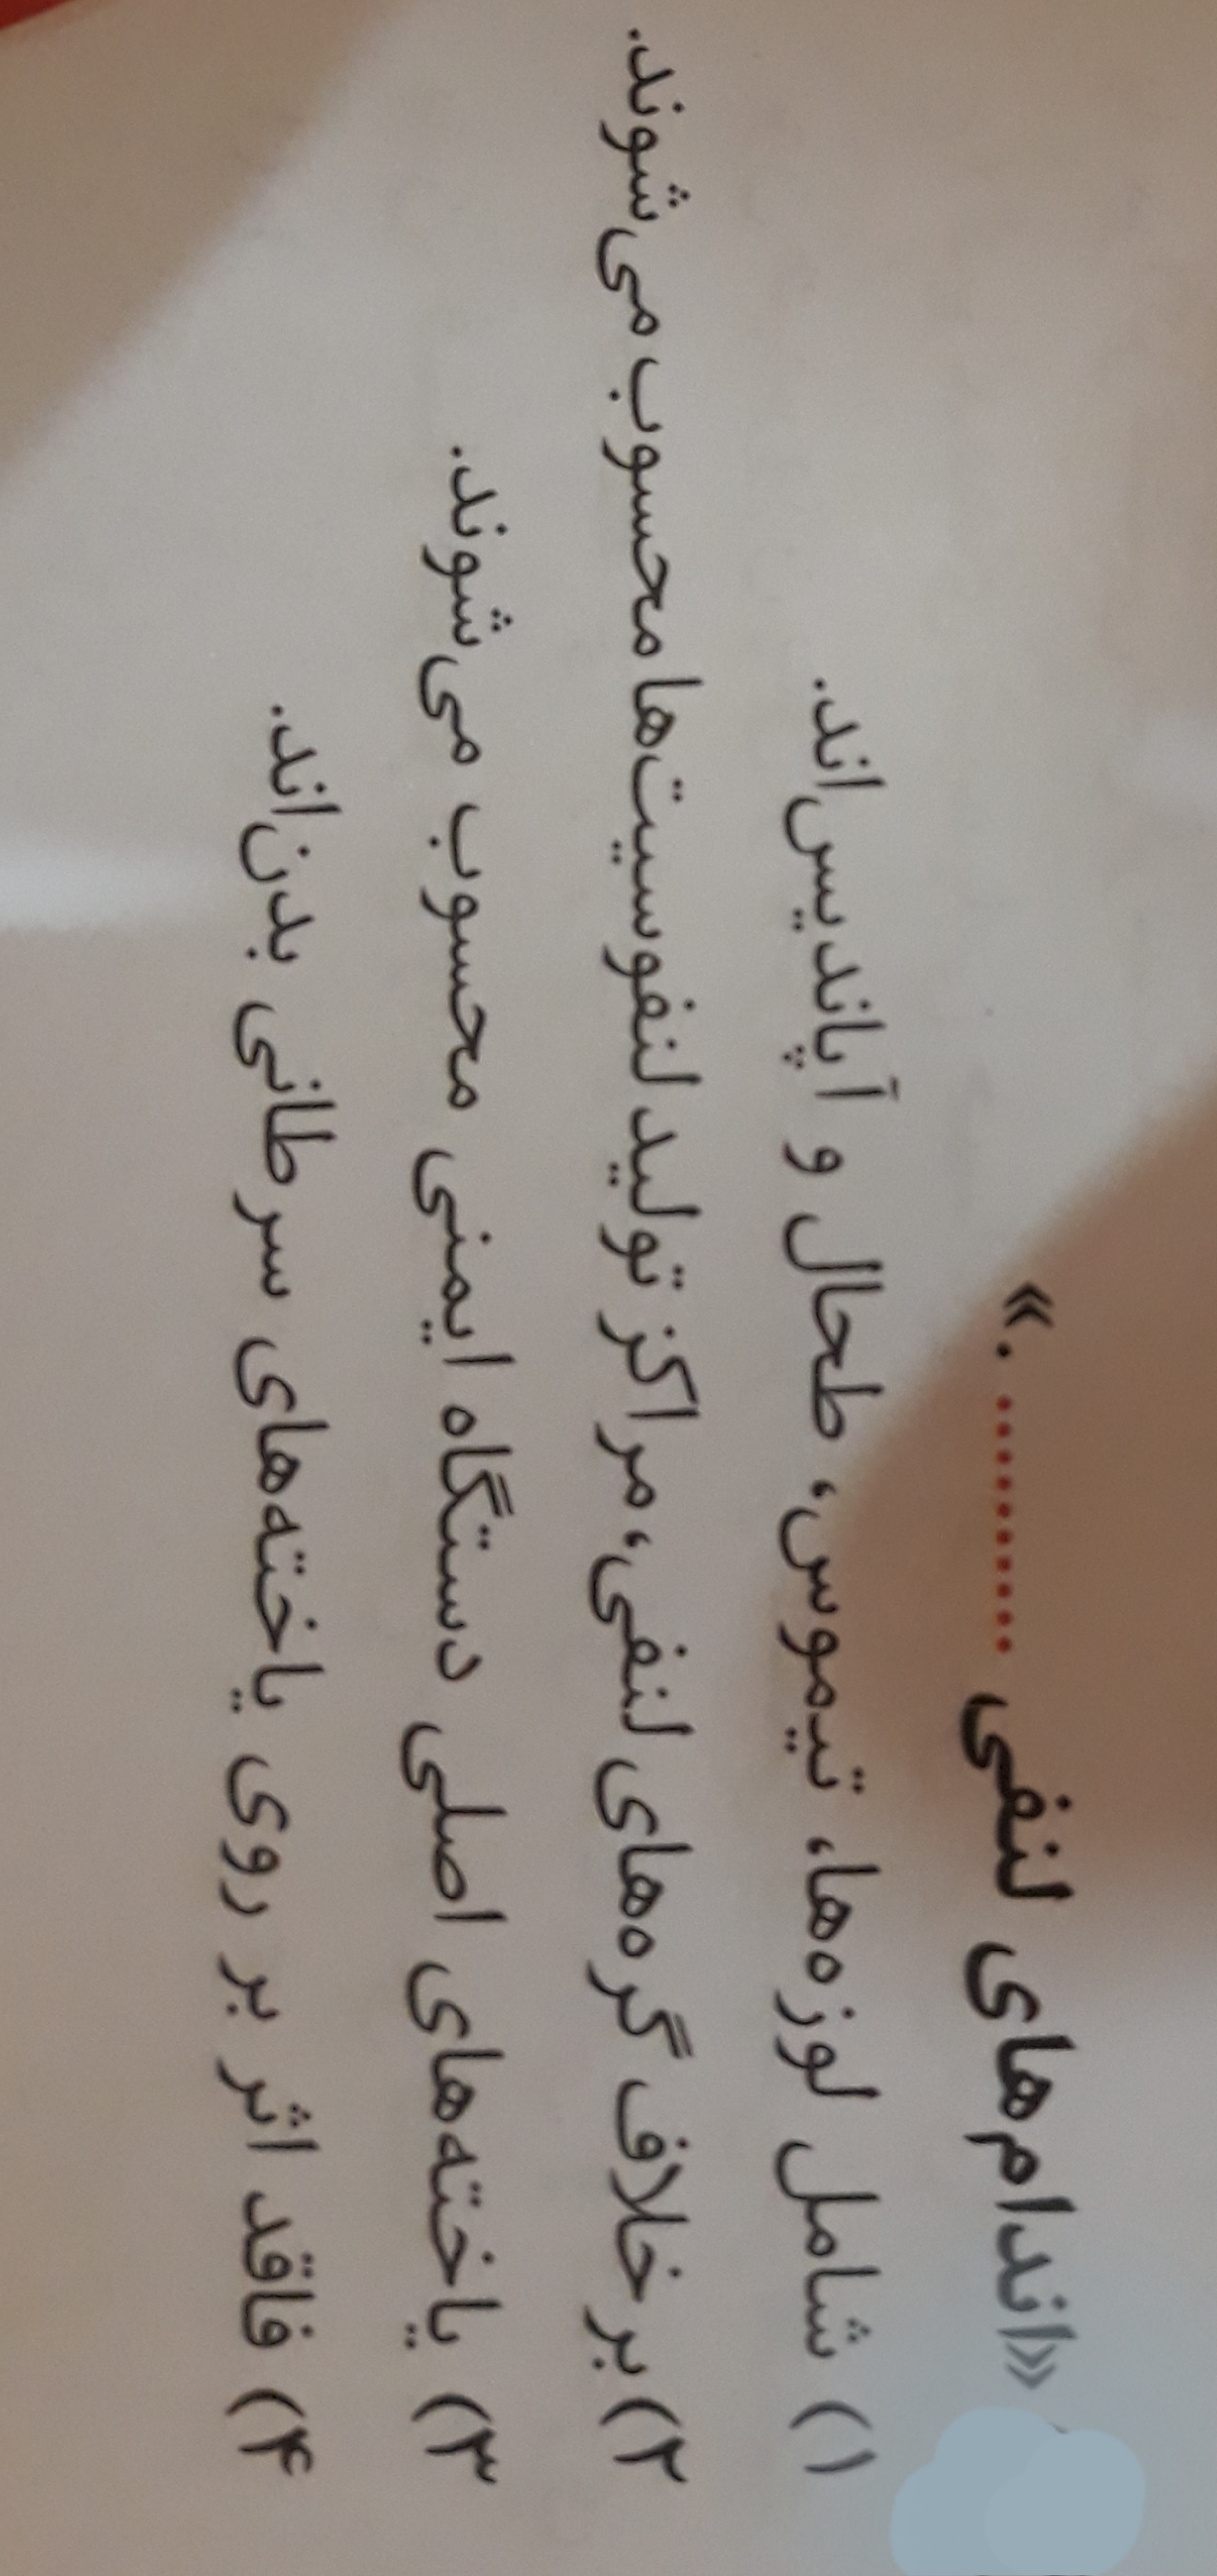 «اندام‌های لنفی ..........  .»
۱) شامل لوزه‌ها، تیموس، طحال و آپاندیس‌اند.
۲) برخلاف گره‌های لنفی، مراکز تولید لنفوسیت‌ها محسوب می‌شوند.
۳) یاخته‌های اصلی دستگاه ایمنی محسوب می‌شوند.
۴) فاقد اثر بر روی یاخته‌های سرطانی بدن‌اند.